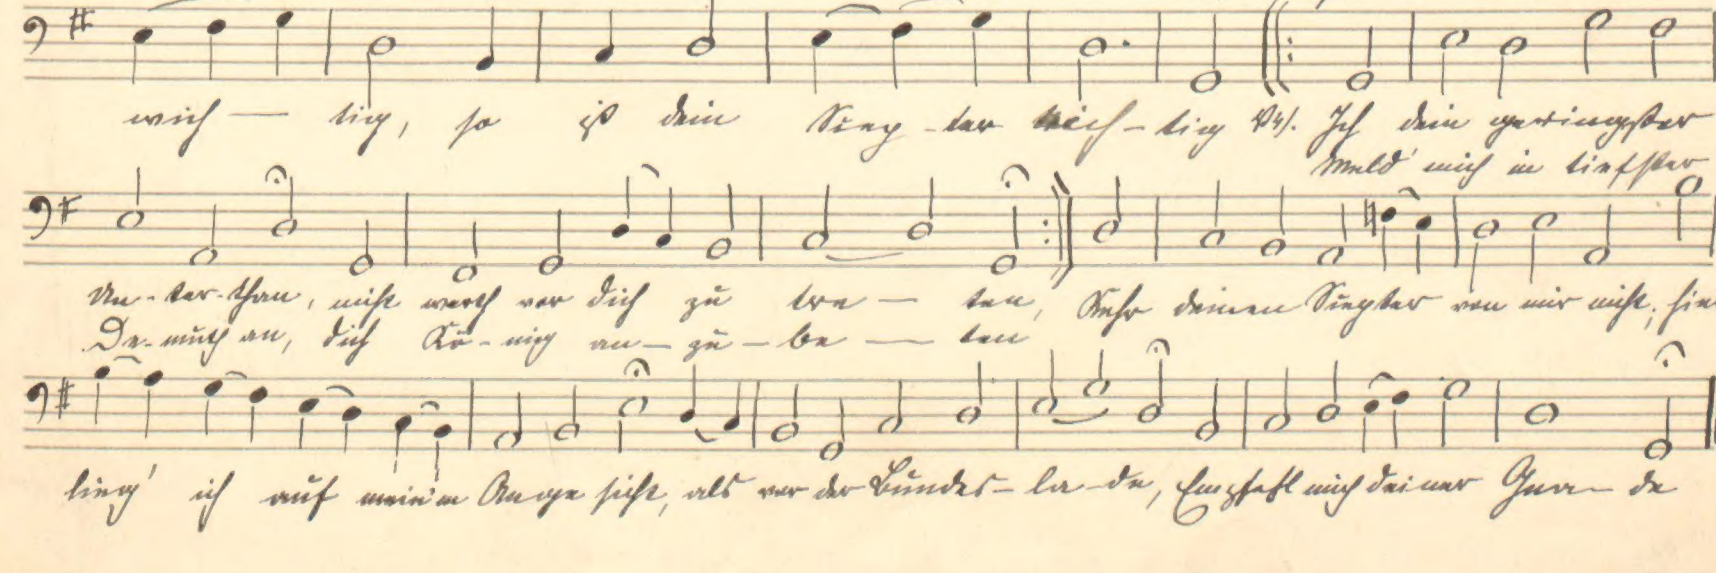 wich — tig, so ist dein Scep - ter rich - tig V4). Ich dein geringster
Meld' mich in tiefster
Un - ter - than, nicht werth vor dich zu tre — ten, Kehr deinen Scepter von mir nicht; hie
De - muth an, dich Kö - nig an — zu — be — ten
lieg' ich auf meinem Ange sicht, als vor der Bundes - la - de, Empfehl mich deiner Gna — de